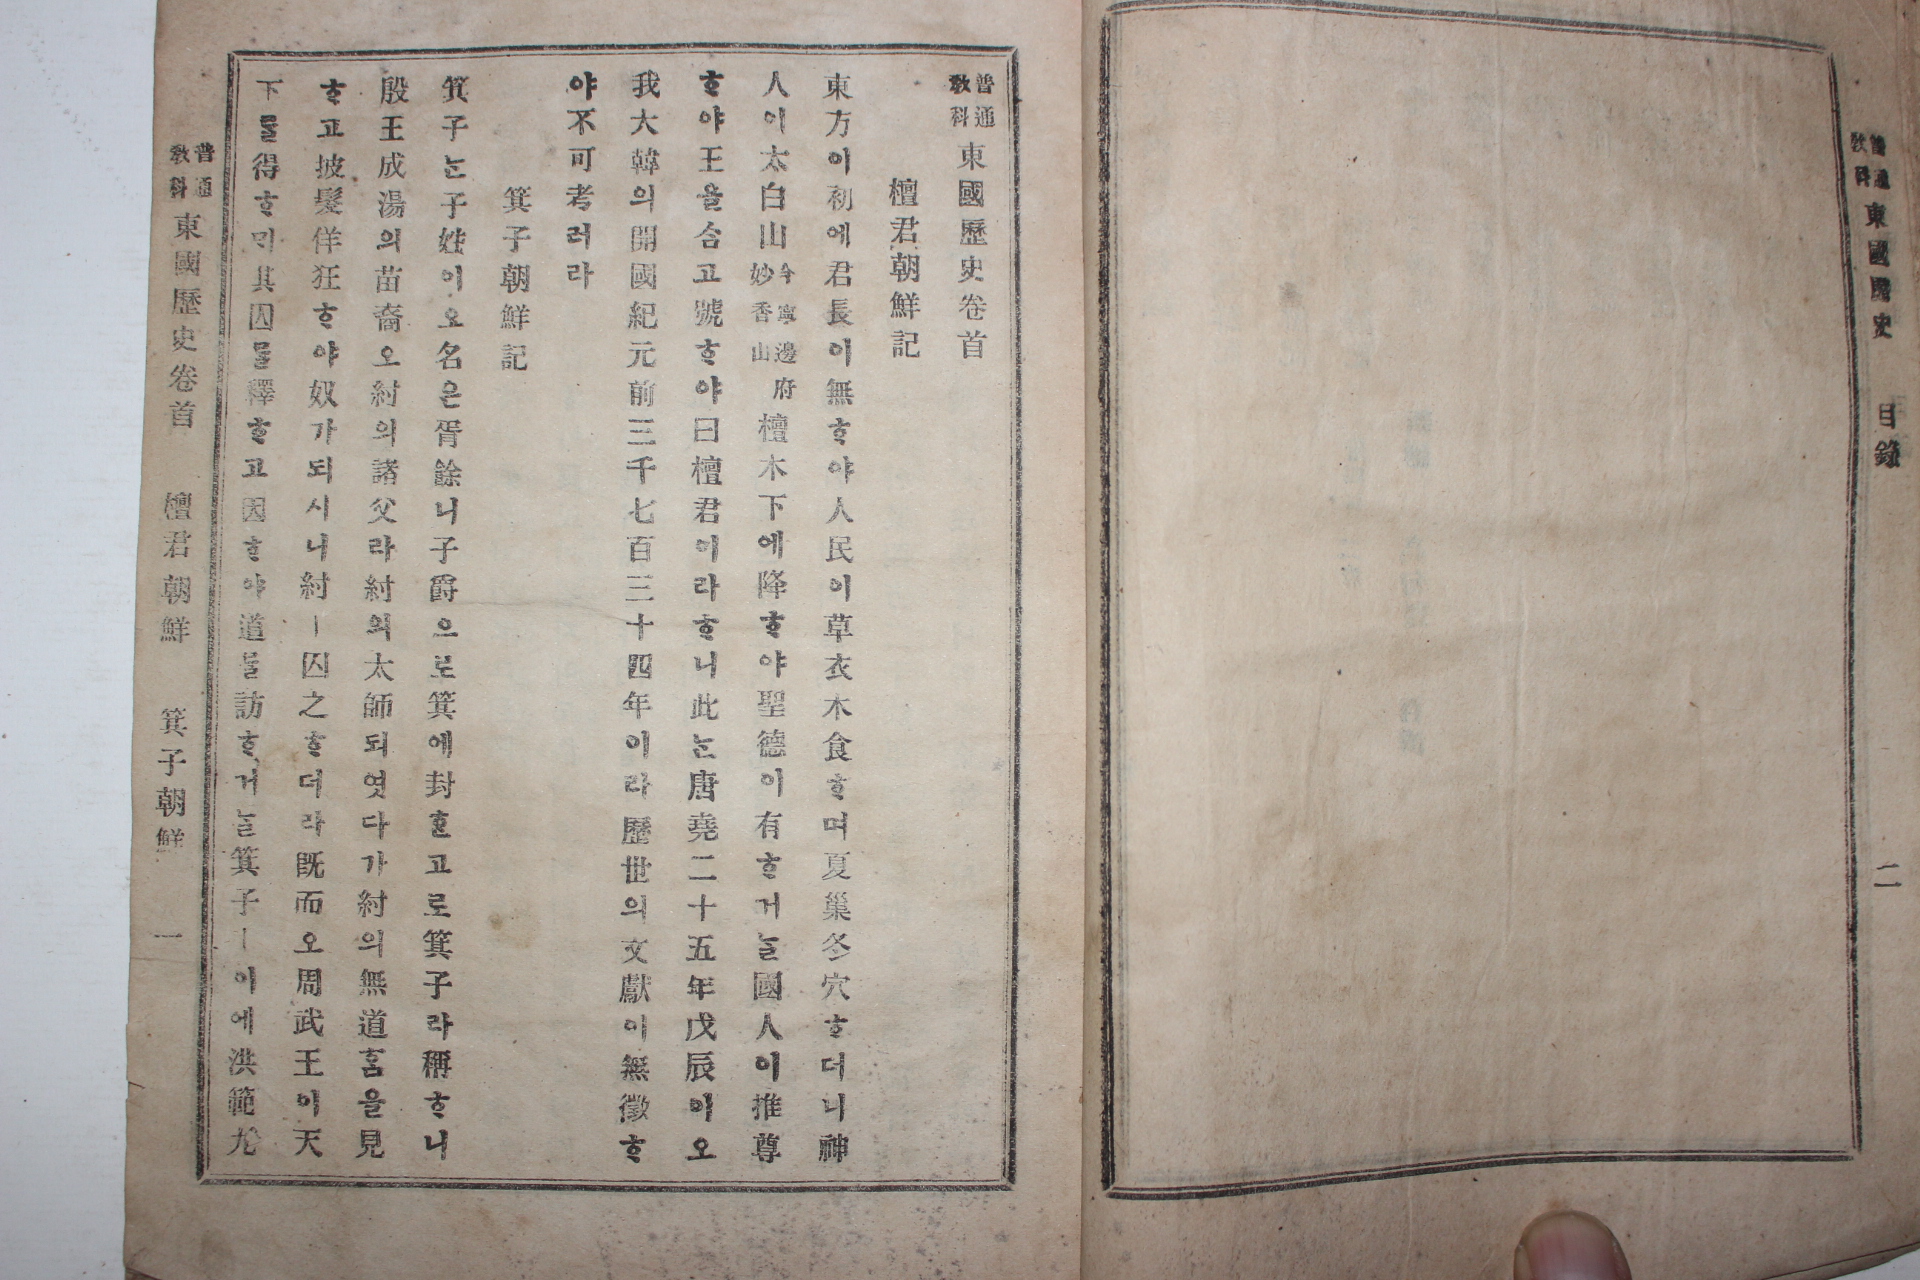 普通教科東國歷史 目錄 二
普通教科東國歷史卷首
檀君朝鮮記
東方이初에君長이無ᄒᆞ야人民이草衣木食ᄒᆞ며夏巢冬穴ᄒᆞ더니神
人이太白山今寧邊府妙香山檀木下에降ᄒᆞ야聖德이有ᄒᆞ거늘國人이推尊
ᄒᆞ야王을合고號ᄒᆞ야曰檀君이라ᄒᆞ니此ᄂᆞᆫ唐堯二十五年戊辰이오
我大韓의開國紀元前三千七百三十四年이라歷世의文獻이無徵ᄒᆞ
야不可考러라
箕子朝鮮記
箕子ᄂᆞᆫ子姓이오名은胥餘니子爵으로箕에封ᄒᆞᆫ고로箕子라稱ᄒᆞ니
殷王成湯의苗裔오紂의諸父라紂의太師되엿다가紂의無道홈을見
ᄒᆞ고披髮佯狂ᄒᆞ야奴가되시니紂ㅣ囚之ᄒᆞ더라旣而오周武王이天
下ᄅᆞᆯ得ᄒᆞᄆᆡ其囚ᄅᆞᆯ釋ᄒᆞ고因ᄒᆞ야道ᄅᆞᆯ訪ᄒᆞ거늘箕子ㅣ이에洪範九
普通教科東國歷史卷首 檀君朝鮮 箕子朝鮮 一